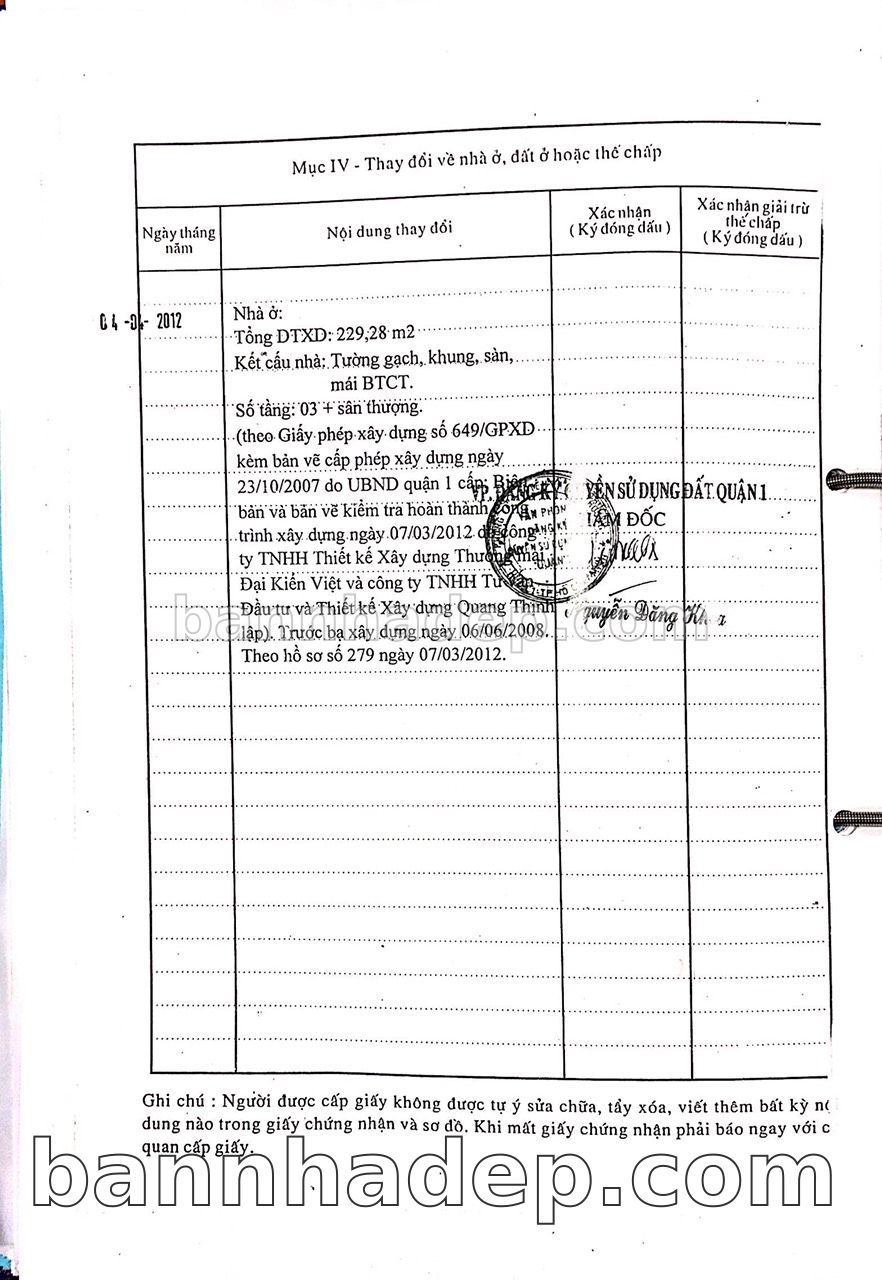 Mục IV - Thay đổi về nhà ở, đất ở hoặc thế chấp
Ngày tháng năm
Nội dung thay đổi
Xác nhận
( Ký đóng dấu )
Xác nhận giải trừ
thế chấp
( Ký đóng dấu )
04 -04- 2012
Nhà ở:
Tổng DTXD: 229,28 m2
Kết cấu nhà: Tường gạch, khung, sàn,
mái BTCT.
Số tầng: 03 + sân thượng.
(theo Giấy phép xây dựng số 649/GPXD
kèm bản vẽ cấp phép xây dựng ngày
23/10/2007 do UBND quận 1 cấp; Biên
bản và bản vẽ kiểm tra hoàn thành công
trình xây dựng ngày 07/03/2012 do công
ty TNHH Thiết kế Xây dựng Thương mại
Đại Kiến Việt và công ty TNHH Tư vấn
Đầu tư và Thiết kế Xây dựng Quang Thịnh
lập). Trước bạ xây dựng ngày 06/06/2008.
Theo hồ sơ số 279 ngày 07/03/2012.
VP. ĐĂNG KÝ YỀN SỬ DỤNG ĐẤT QUẬN 1
ÁM ĐỐC
guyễn Đăng
bannhadep.com
Ghi chú : Người được cấp giấy không được tự ý sửa chữa, tẩy xóa, viết thêm bất kỳ nộ
dung nào trong giấy chứng nhận và sơ đồ. Khi mất giấy chứng nhận phải báo ngay với c
quan cấp giấy.
bannhadep.com